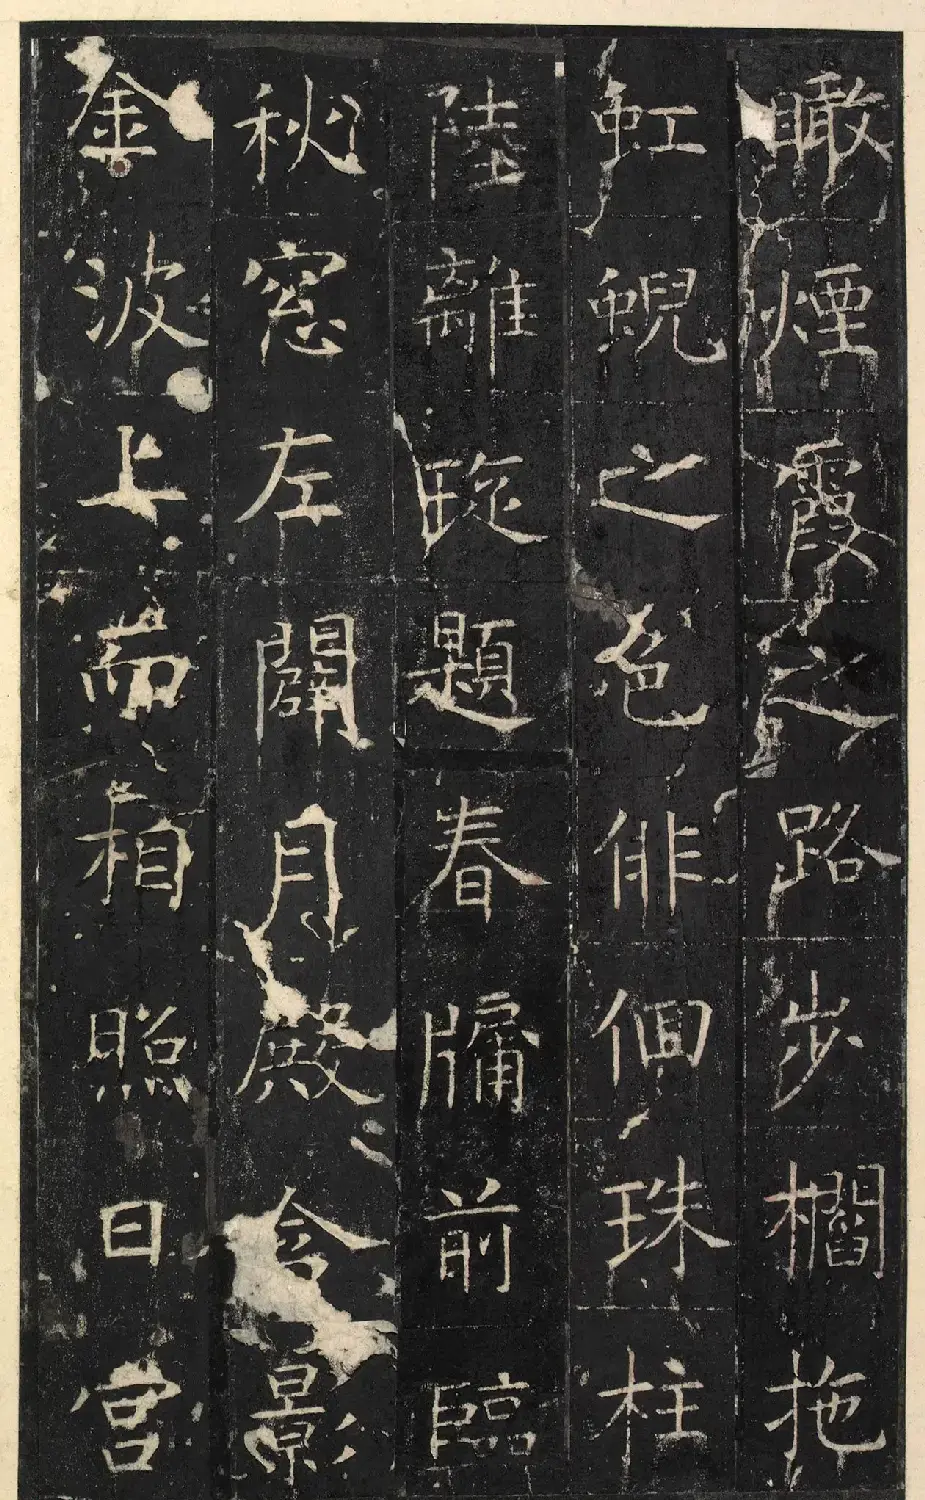 瞰煙霞之路步櫩拖
虹蜺之色俳佪珠柱
陸離琁題春牖前臨
秋窓左闢月殿含影
金波上而相照日宫